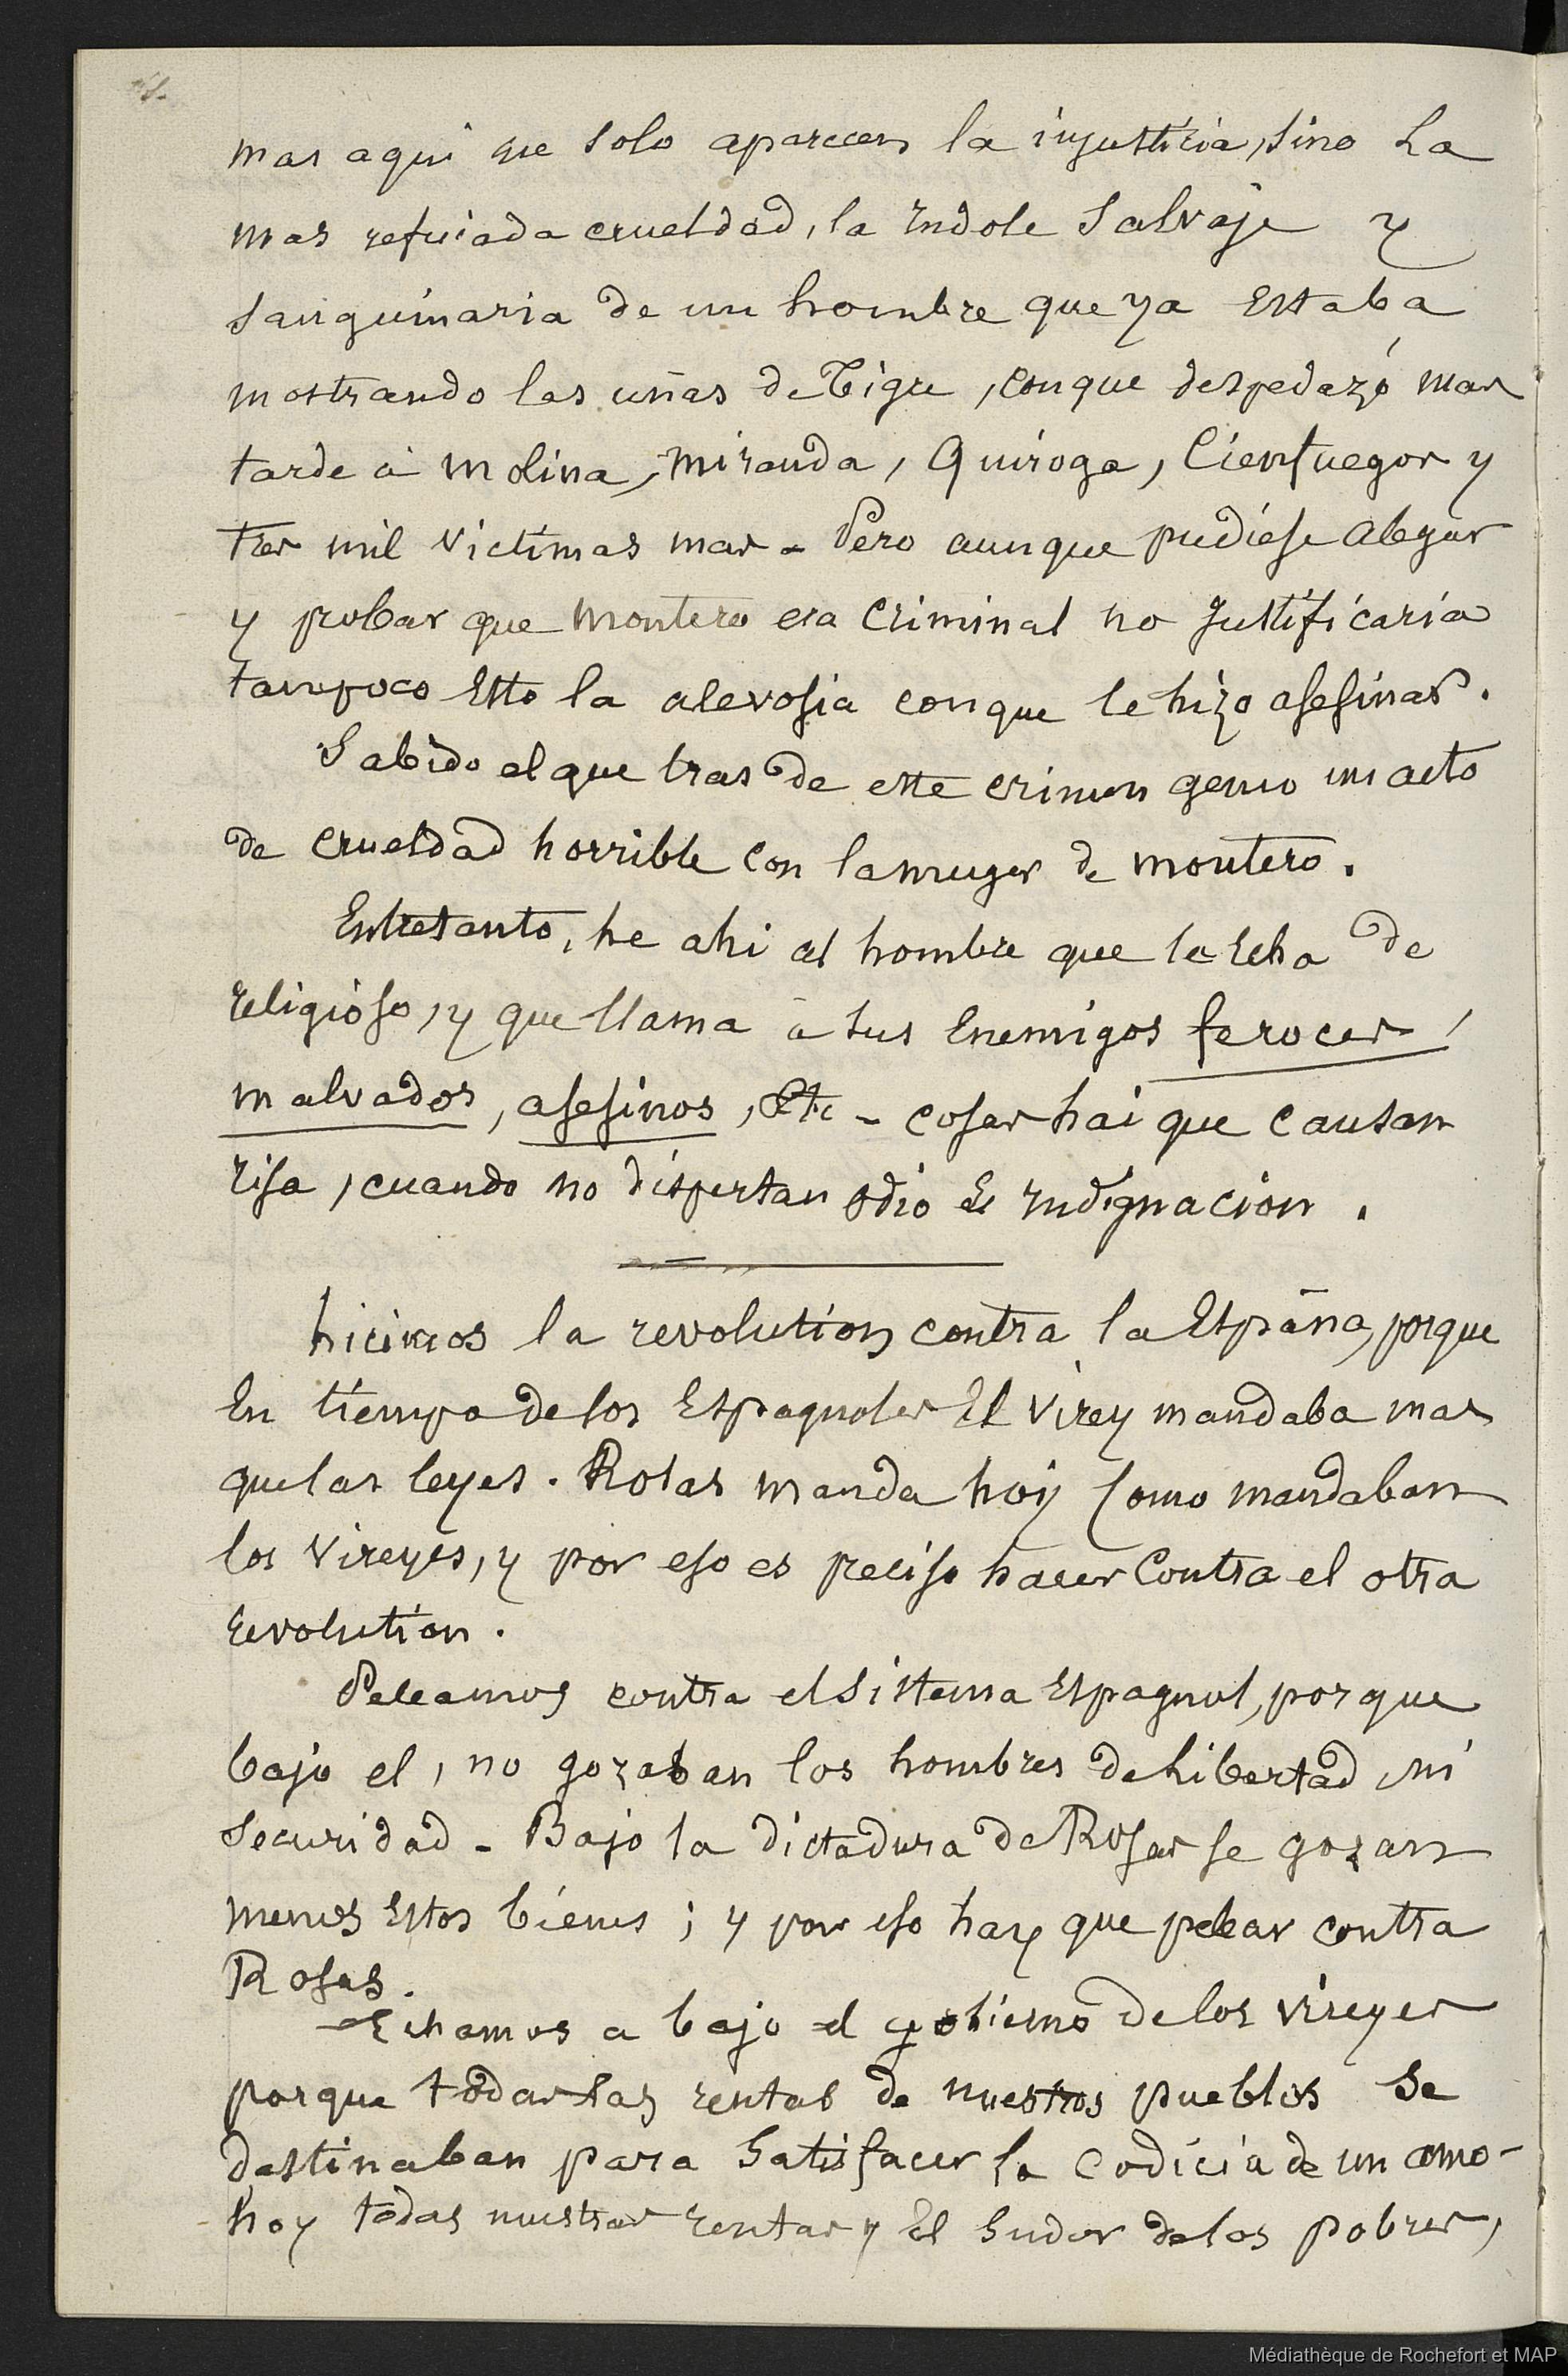 mas aqui no solo aparecen la injusticia, sino la
mas refinada crueldad, la indole salvaje y
sanguinaria de un hombre que ya estaba
mostrando las uñas de Tigre, conque despedazó mas
tarde à Molina, Miranda, Quiroga, Cienfuegos y
tres mil victimas mas - Pero aunque pudiese alegar
y probar que Montero era criminal no justificaria
tampoco esto la alevosia conque le hizo asesinar.
Sabido el que tras de este crimen un acto
de crueldad horrible con la muger de Montero.
Entretanto, he ahi al hombre que la echa de
religioso, y que llama à sus enemigos feroces,
malvados, asesinos, etc - cosas hai que causan
risa, cuando no dispertan odio è indignacion.
hicimos la revolution contra la España, porque
En tiempo de los Espagnoles El virey mandaba mas
que las leyes. Rosas manda hoy como mandaban
los Vireyes, y por eso es preciso hacer contra el otra
revolution.
Peleamos contra el sistema Espagnol, porque
bajo el, no gozaban los hombres de libertad ni
securidad - Bajo la dictadura de Rosas se gozan
menos estos bienes; y por eso hay que pelear contra
Rosas.
Echamos a bajo el gobierno de los vireyes
porque todas las rentas de nuestros pueblos se
destinaban para satisfacer la codicia de un amo -
hoy todas nuestras rentas y El sudor de los pobres,
Médiathèque de Rochefort et MAP